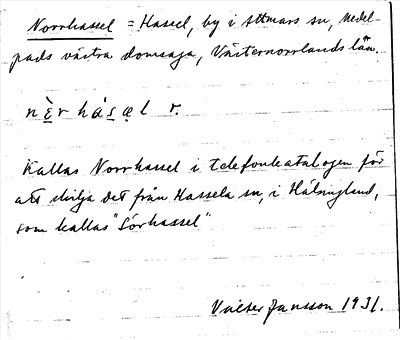 Norrhassel = Hassel, by i Attmars sn, Medel-
pads västra domsaga, Västernorrlands län.
nè̱r hás̱ə̣l r.
Kallas Norrhassel i telefonkatalogen för
att skilja det från Hassela sn, i Hälsingland,
som kallas "Sörhassel"
Valter Jansson 1931.